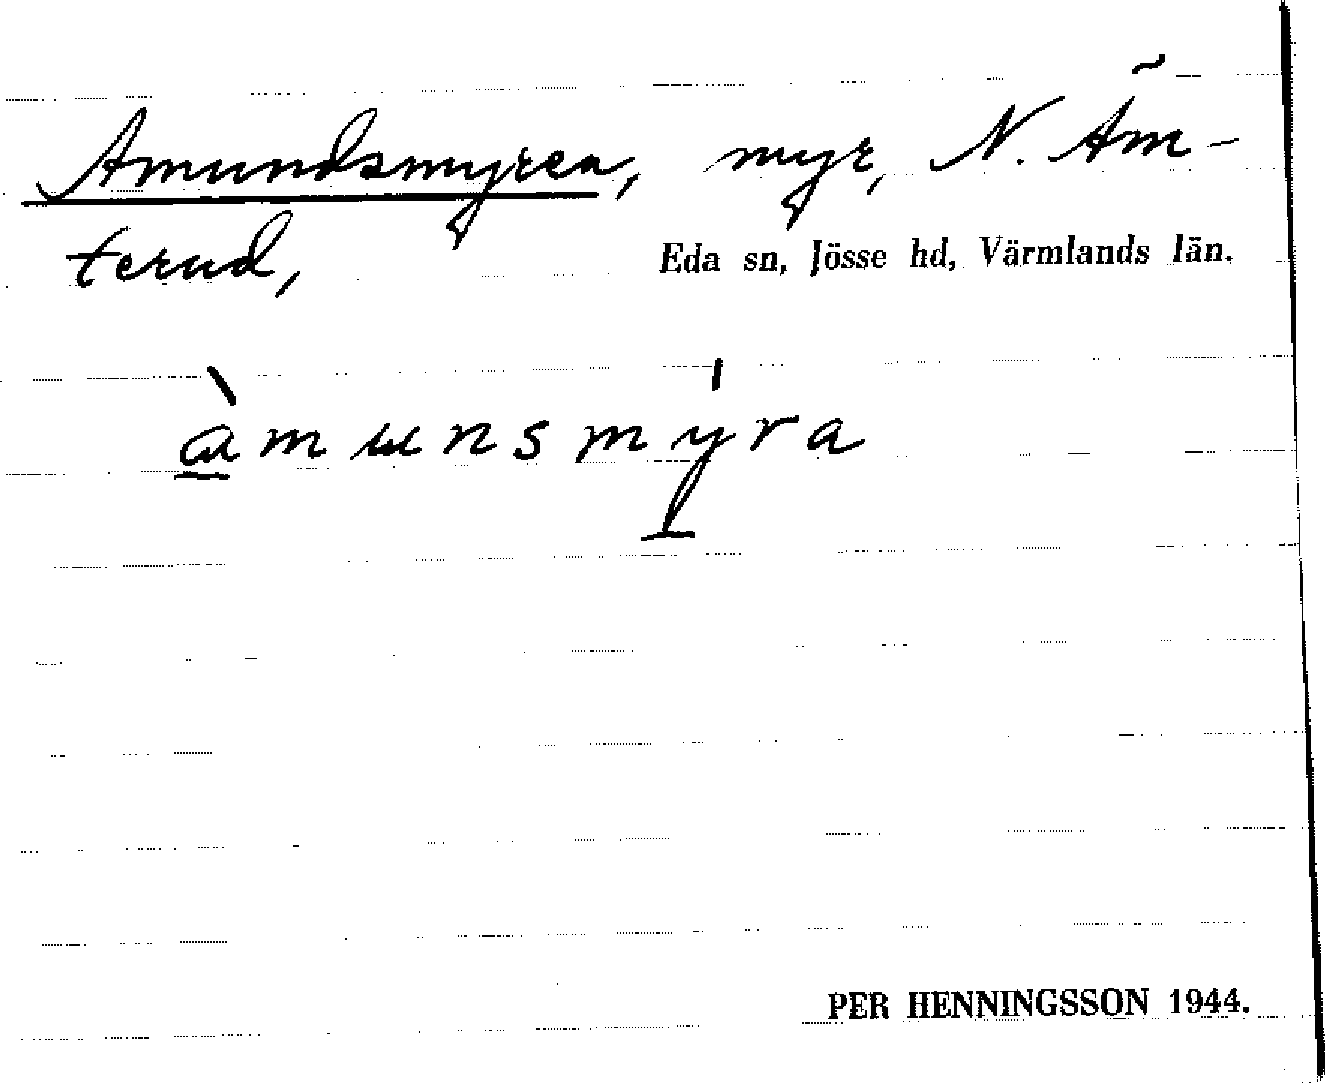 Amundsmyren, myr, N. Äm-
terud,
Eda sn, Jösse hd, Värmlands län.
àmunsmýra
PER HENNINGSSON 1944.